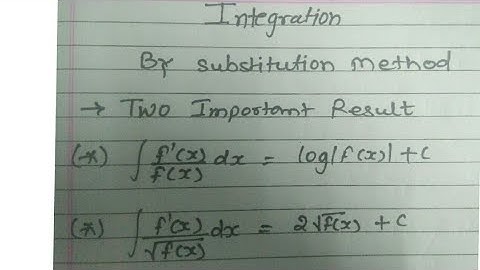 Integration
By substitution Method
→ Two Important Result
(*) ∫ f'(x)/f(x) dx = log|f(x)| + c
(*) ∫ f'(x)/√f(x) dx = 2√f(x) + c